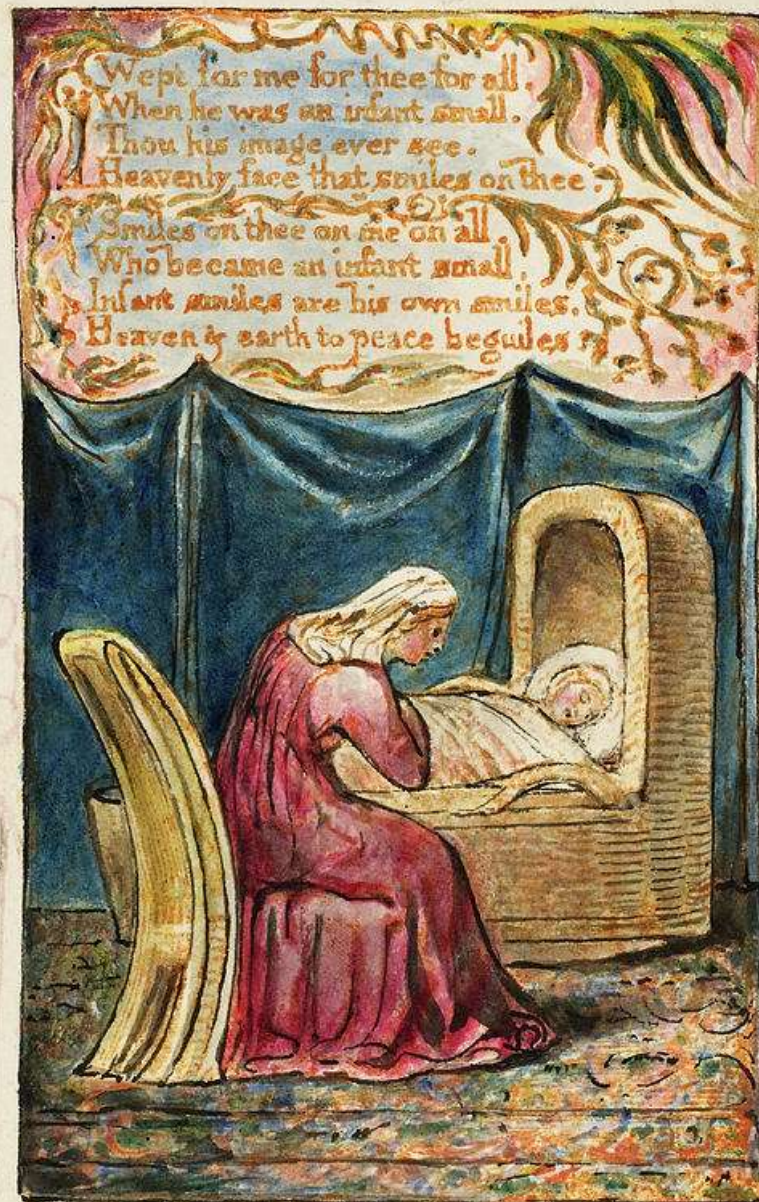 Wept for me for thee for all.
When he was an infant small.
Thou his image ever see.
Heavenly face that smiles on thee.
Smiles on thee on me on all,
Who became an infant small,
Infant smiles are his own smiles.
Heaven & earth to peace beguiles.